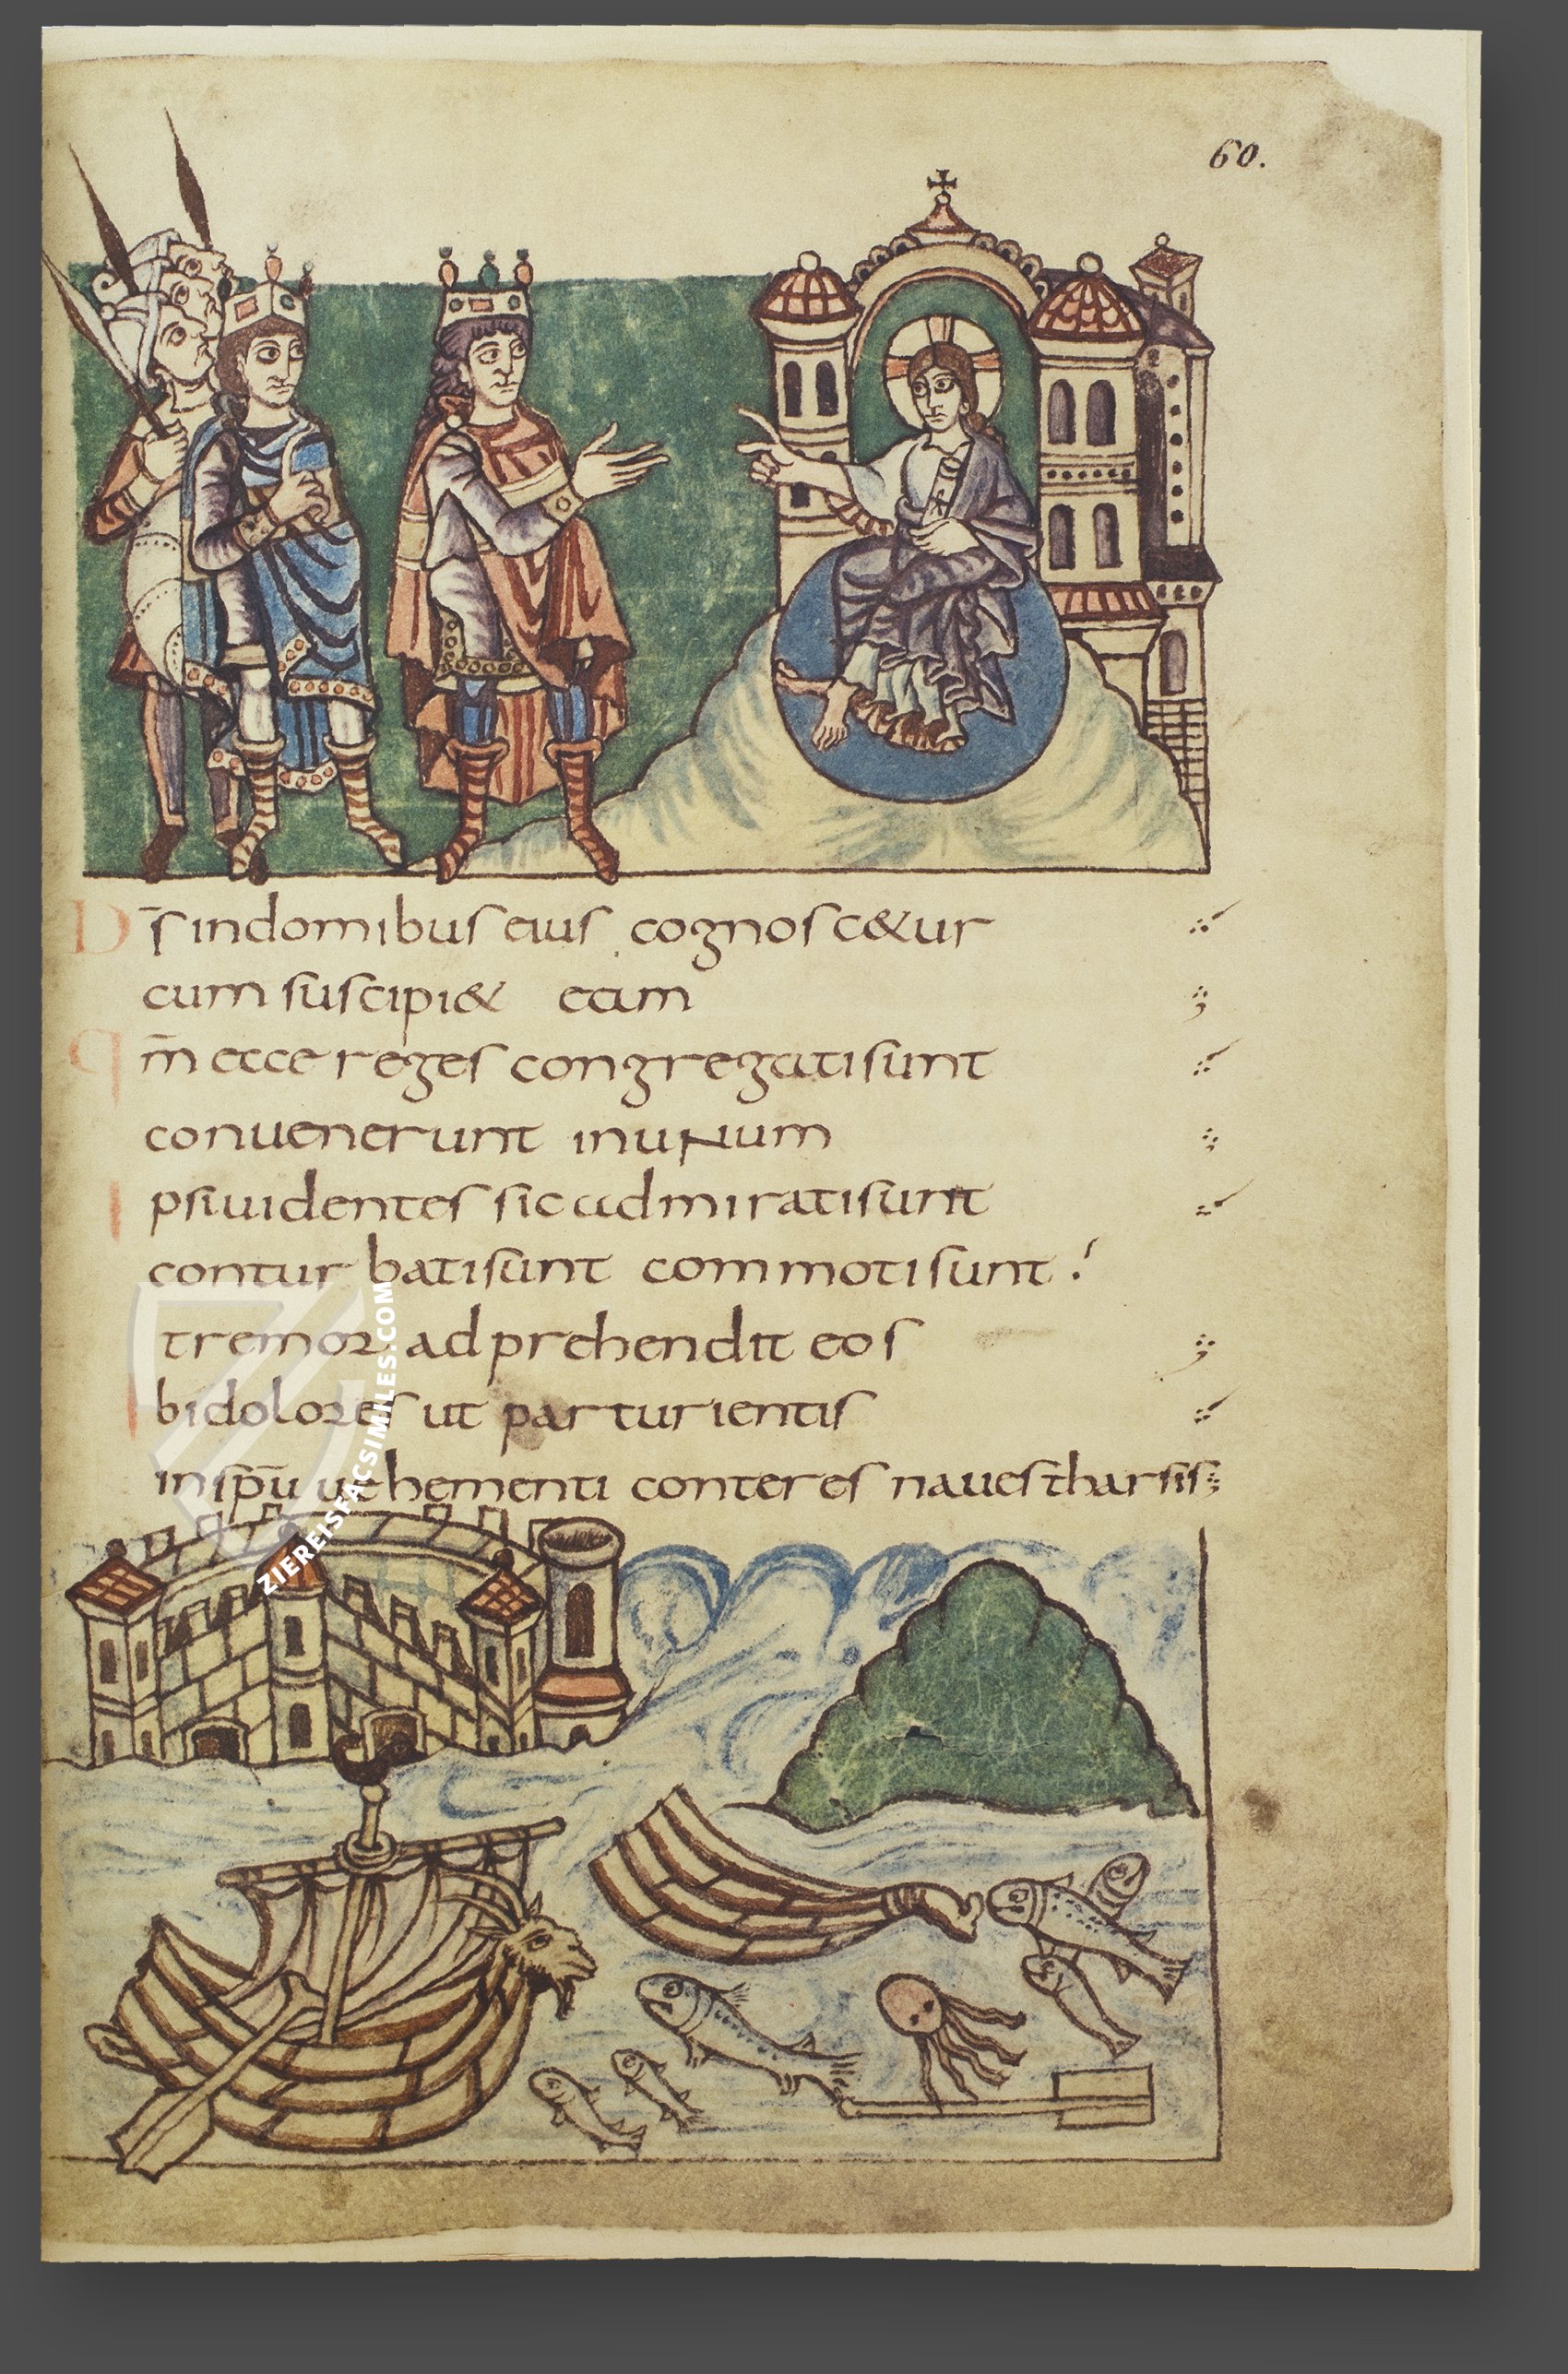 60.
Ds̄ indomibus eius cognosc&ur
cum suscipi& eam
Qm̄ ecce reges congregati sunt
conuenerunt inuNum
Ipsi uidentes sic admirati sunt
conturbati sunt commoti sunt
tremor adprehendit eos
Ibi dolores ut parturientis
in spū uehementi conteres naues tharsis
ZIEREISFACSIMILES.COM